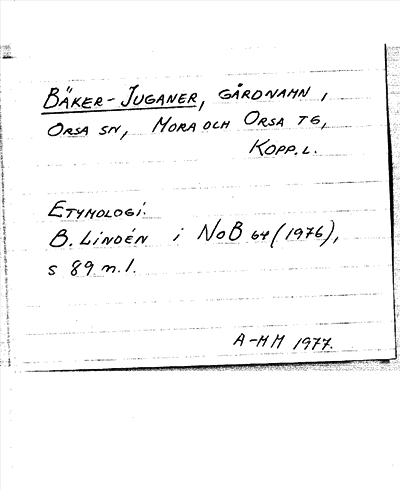 BÄKER-JUGANER, GÅRDNAMN,
ORSA SN, MORA OCH ORSA TG,
KOPP. L.
ETYMOLOGI.
B. LINDÉN i NoB 64 (1976),
s 89 m. l.
A-MM 1977.